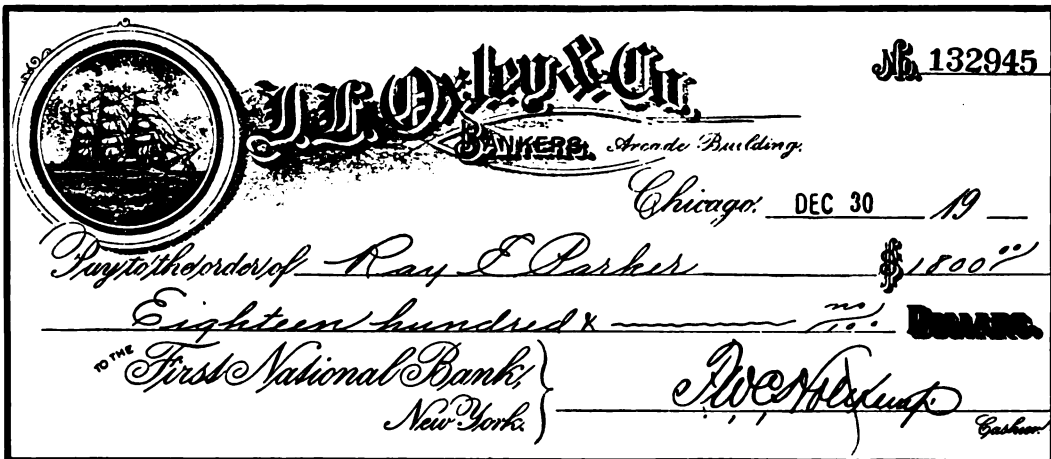 J.L. Oxley & Co.
No. 132945
BANKERS. Arcade Building.
Chicago. DEC 30 19
Pay to the order of Ray E Parker $ 1800 00
Eighteen hundred & no/100 DOLLARS.
TO THE First National Bank,
New York.
Cashier